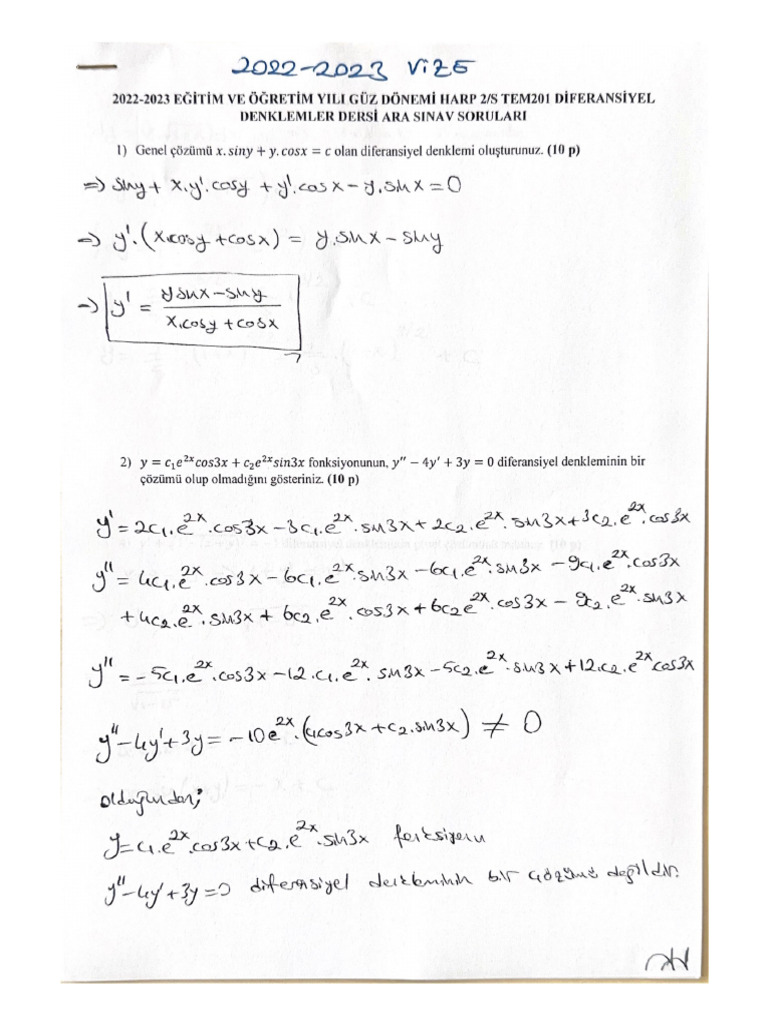 2022-2023 VİZE
2022-2023 EĞİTİM VE ÖĞRETİM YILI GÜZ DÖNEMİ HARP 2/S TEM201 DİFERANSİYEL
DENKLEMLER DERSİ ARA SINAV SORULARI
1) Genel çözümü x.siny + y.cosx = c olan diferansiyel denklemi oluşturunuz. (10 p)
⇒ siny + x.y'.cosy + y'.cosx − y.sinx = 0
⇒ y'.(x.cosy + cosx) = y.sinx − siny
⇒ y' = (ysinx − siny) / (x.cosy + cosx)
2) y = c₁e²ˣcos3x + c₂e²ˣsin3x fonksiyonunun, y'' − 4y' + 3y = 0 diferansiyel denkleminin bir
çözümü olup olmadığını gösteriniz. (10 p)
y' = 2c₁.e²ˣ.cos3x − 3c₁.e²ˣ.sin3x + 2c₂.e²ˣ.sin3x + 3c₂.e²ˣ.cos3x
y'' = 4c₁.e²ˣ.cos3x − 6c₁.e²ˣ.sin3x − 6c₁.e²ˣ.sin3x − 9c₁.e²ˣ.cos3x
+ 4c₂.e²ˣ.sin3x + 6c₂.e²ˣ.cos3x + 6c₂e²ˣ.cos3x − 9c₂.e²ˣ.sin3x
y'' = −5c₁.e²ˣ.cos3x − 12.c₁.e²ˣ.sin3x − 5c₂.e²ˣ.sin3x + 12.c₂.e²ˣcos3x
y'' − 4y' + 3y = −10e²ˣ.(c₁cos3x + c₂.sin3x) ≠ 0
olduğundan;
y = c₁.e²ˣ.cos3x + c₂.e²ˣ.sin3x fonksiyonu
y'' − 4y' + 3y = 0 diferansiyel denkleminin bir çözümü değildir.